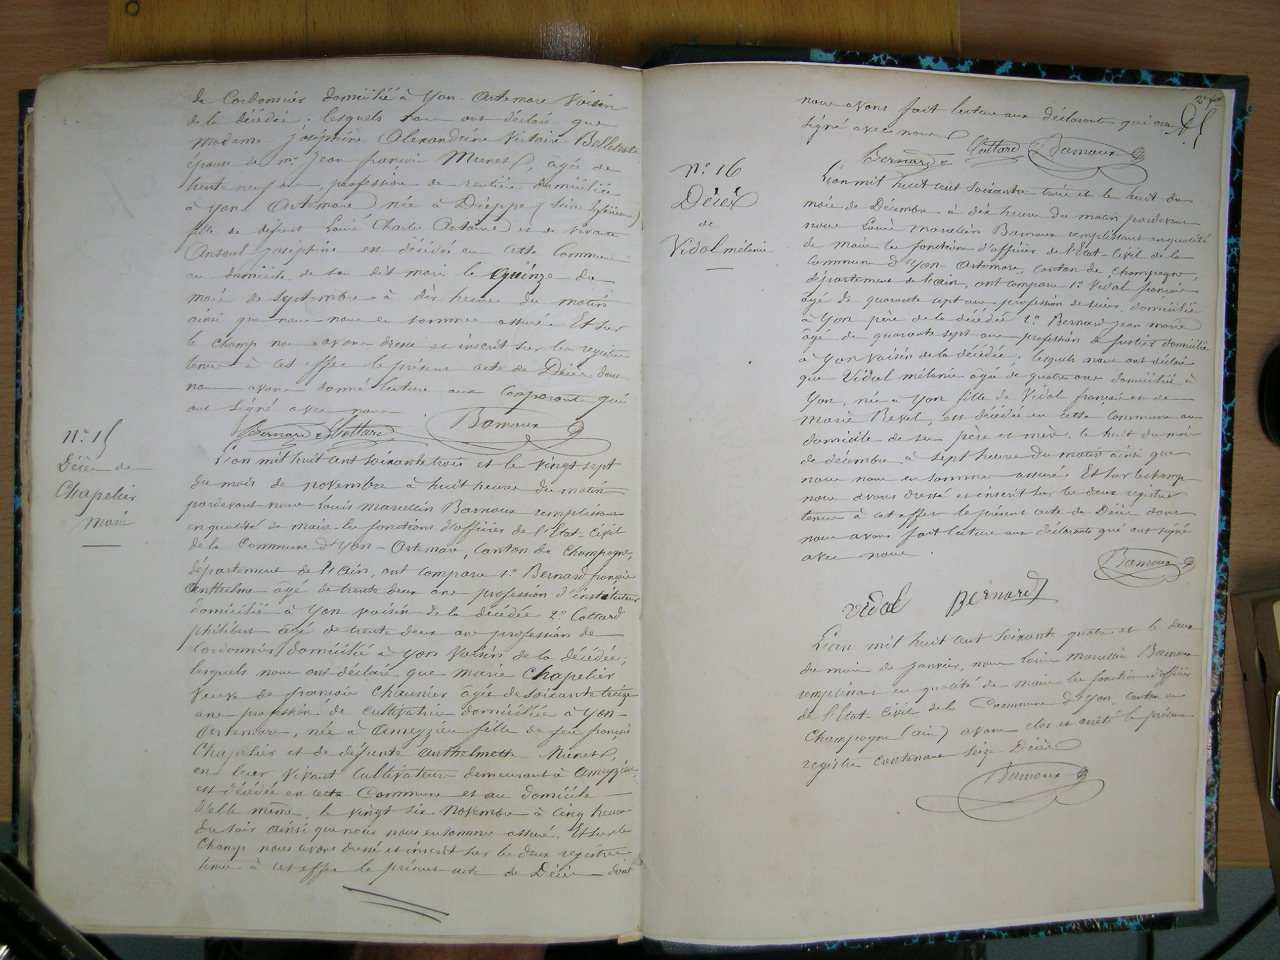 de Cordonnier domicilié à Yon-Artemare Voisin
de la décédée. lesquels nous ont déclaré que
Madame Joséphine Alexandrine Victoire
épouse de Mr Jean françois Munet, âgée de
trente neuf ans, profession de rentière domiciliée
à Yon-Artemare née à Dieppe (Seine Inférieure)
fille de défunt Louis Charles Antoine et de vivante
Joséphine est décédée en cette Commune
au domicile de son dit mari le quinze du
mois de septembre à dix heures du matin
ainsi que nous nous en sommes assuré. Et sur
le champ nous avons dressé et inscrit sur les registres
tenus à cet effet le présent acte de Décès dont
nous avons donné lecture aux comparants qui
ont signé avec nous
Bernard Cottard Barnoux
N° 15
Décès de
Chapelier
Marie
L'an mil huit cent soixante trois et le vingt sept
du mois de novembre à huit heures du matin
pardevant nous Louis Marcelin Barnoux remplissant
en qualité de maire les fonctions d'officier de l'Etat-Civil
de la Commune d'Yon-Artemare, Canton de Champagne,
département de l'Ain, ont comparu 1° Bernard françois
Anthelme âgé de trente deux ans profession d'instituteur
domicilié à Yon voisin de la décédée 2° Cottard
philibert âgé de trente deux ans profession de
Cordonnier domicilié à Yon Voisin de la décédée,
lesquels nous ont déclaré que marie Chapelier
Veuve de françois Chaunier âgée de soixante treize
ans profession de cultivatrice domiciliée à Yon-
Artemare, née à Ameyzieu fille de feu françois
Chapelier et de défunte Anthelmette Munet,
en leur vivant Cultivateurs demeurant à Ameyzieu
est décédée en cette Commune et au domicile
d'elle même, le vingt six novembre à cinq heures
du soir ainsi que nous nous en sommes assuré. Et sur le
champ nous avons dressé et inscrit sur les deux registres
tenus à cet effet le présent acte de Décès dont
nous avons fait lecture aux déclarants qui ont
signé avec nous
Bernard Cottard Barnoux
N° 16
Décès
de
Vidal mélanie
L'an mil huit cent soixante trois et le huit du
mois de Décembre à dix heures du matin pardevant
nous Louis Marcelin Barnoux remplissant en qualité
de maire les fonctions d'officier de l'Etat Civil de la
Commune d'Yon-Artemare, canton de Champagne,
département de l'ain, ont comparu 1° Vidal françois
âgé de quarante sept ans profession de domicilié
à Yon père de la décédée 2° Bernard Jean marie
âgé de quarante sept ans profession de domicilié
à Yon Voisin de la décédée. lesquels nous ont déclaré
que Vidal mélanie âgée de quatre ans domiciliée à
Yon, née à Yon fille de Vidal françois et de
Marie Revel, est décédée en cette Commune au
domicile de ses père et mère. le huit du mois
de décembre à sept heures du matin ainsi que
nous nous en sommes assuré. Et sur le champ
nous avons dressé et inscrit sur les deux registres
tenus à cet effet le présent acte de Décès dont
nous avons fait lecture aux déclarants qui ont signé
avec nous.
Barnoux
Vidal Bernard
L'an mil huit cent soixante quatre et le deux
du mois de janvier, nous Louis Marcelin Barnoux
remplissant en qualité de maire les fonctions d'officier
de l'Etat-Civil de la Commune d'Yon, canton de
Champagne (ain) avons clos et arrêté le présent
registre contenant seize Décès
Barnoux